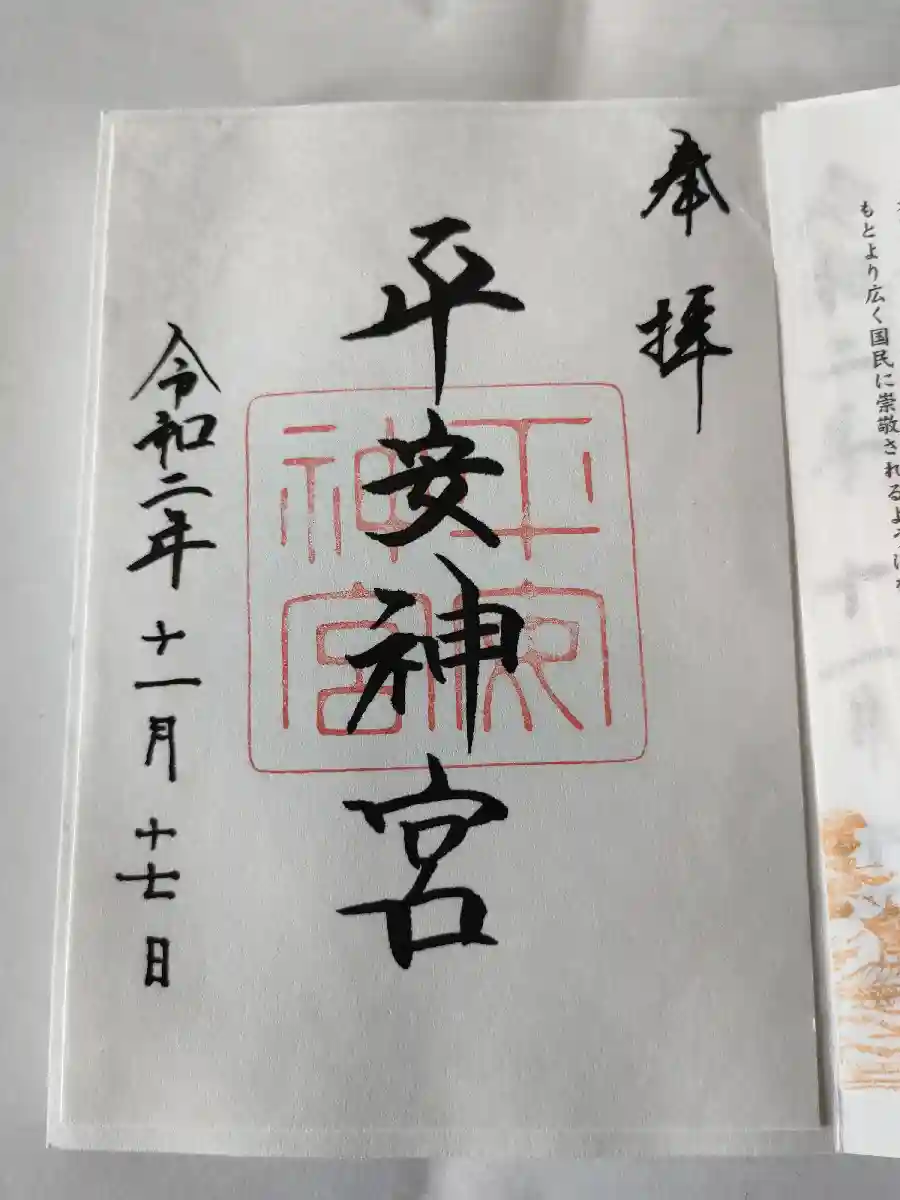 もとより広く国民に崇敬されるよ
奉拝
平安神宮
平安神宮
令和二年十一月十七日